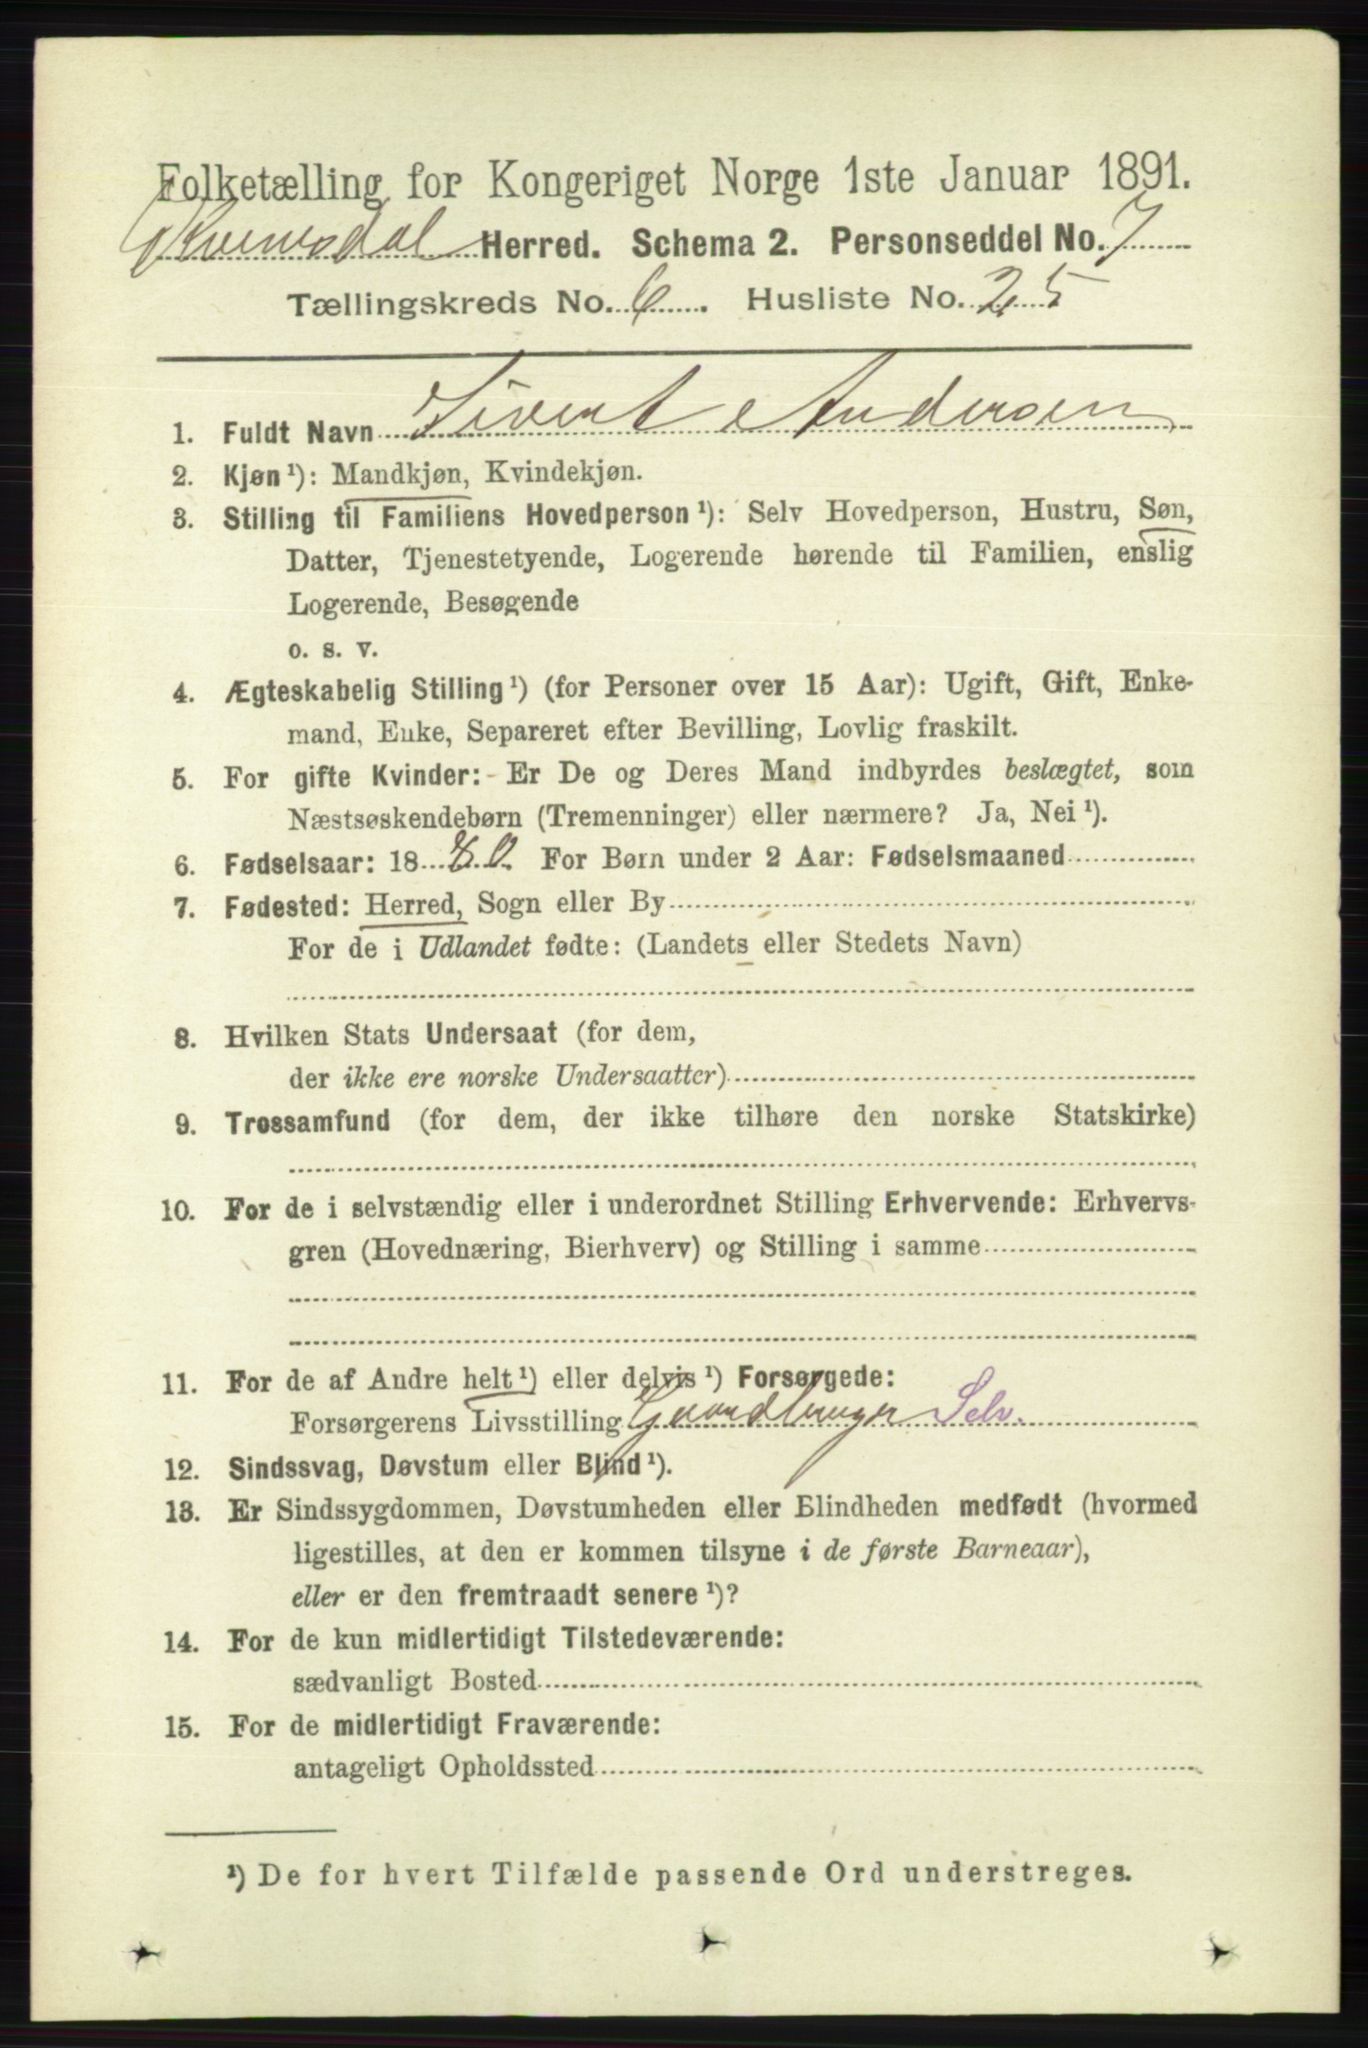 Folketælling for Kongeriget Norge 1ste Januar 1891.
Kvernesdal Herred. Schema 2. Personseddel No. 7
Tællingskreds No. 6. Husliste No. 25
1. Fuldt Navn Sivert Andersen
2. Kjøn¹): Mandkjøn, Kvindekjøn.
3. Stilling til Familiens Hovedperson¹): Selv Hovedperson, Hustru, Søn,
Datter, Tjenestetyende, Logerende hørende til Familien, enslig
Logerende, Besøgende
o. s. v.
4. Ægteskabelig Stilling¹) (for Personer over 15 Aar): Ugift, Gift, Enke-
mand, Enke, Separeret efter Bevilling, Lovlig fraskilt.
5. For gifte Kvinder: Er De og Deres Mand indbyrdes beslægtet, som
Næstsøskendebørn (Tremenninger) eller nærmere? Ja, Nei¹).
6. Fødselsaar: 1880. For Børn under 2 Aar: Fødselsmaaned
7. Fødested: Herred, Sogn eller By
For de i Udlandet fødte: (Landets eller Stedets Navn)
8. Hvilken Stats Undersaat (for dem,
der ikke ere norske Undersaatter)
9. Trossamfund (for dem, der ikke tilhøre den norske Statskirke)
10. For de i selvstændig eller i underordnet Stilling Erhvervende: Erhvervs-
gren (Hovednæring, Bierhverv) og Stilling i samme
11. For de af Andre helt¹) eller delvis¹) Forsørgede:
Forsørgerens Livsstilling Gaardbruger Selv.
12. Sindssvag, Døvstum eller Blind¹).
13. Er Sindssygdommen, Døvstumheden eller Blindheden medfødt (hvormed
ligestilles, at den er kommen tilsyne i de første Barneaar),
eller er den fremtraadt senere¹)?
14. For de kun midlertidigt Tilstedeværende:
sædvanligt Bosted
15. For de midlertidigt Fraværende:
antageligt Opholdssted
¹) De for hvert Tilfælde passende Ord understreges.